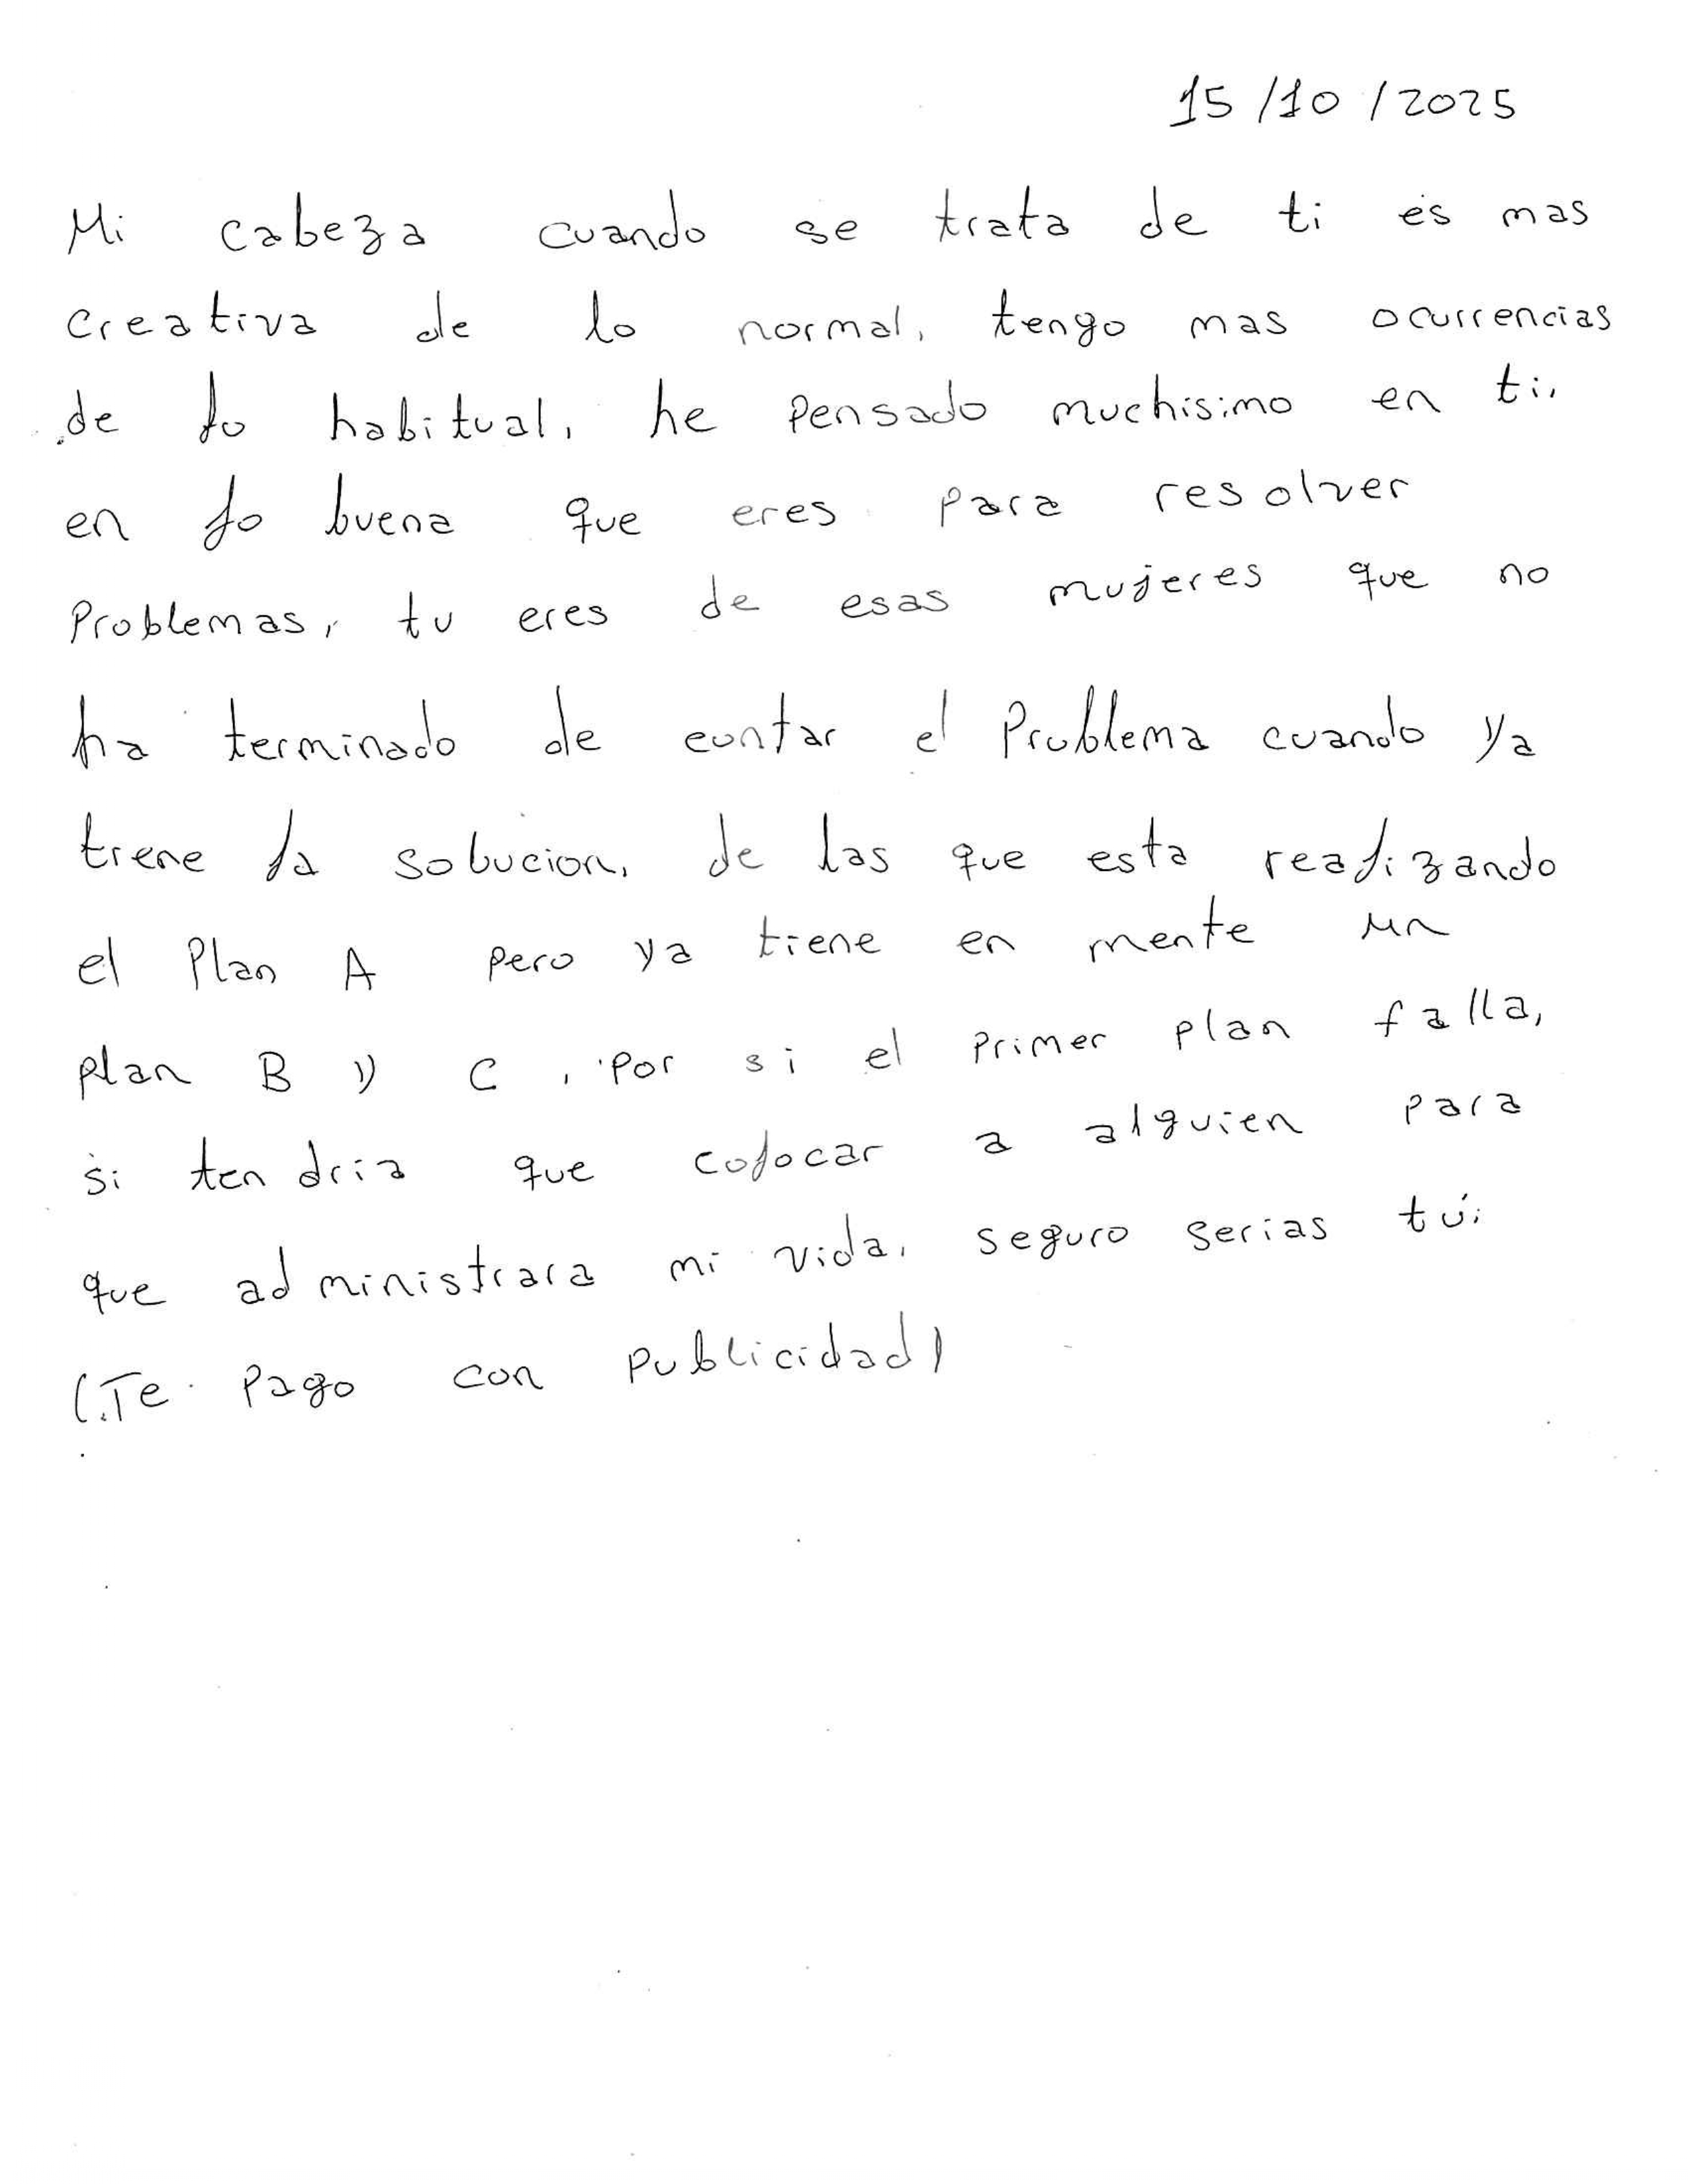 15/10/2025
Mi cabeza cuando se trata de ti es mas
creativa de lo normal, tengo mas ocurrencias
de lo habitual, he pensado muchisimo en ti,
en lo buena que eres para resolver
Problemas, tu eres de esas mujeres que no
ha terminado de contar el Problema cuando ya
tiene la solucion, de las que esta realizando
el Plan A pero ya tiene en mente un
plan B y C, por si el primer plan falla,
si tendria que colocar a alguien para
que administrara mi vida, seguro serias tú:
(Te pago con publicidad)